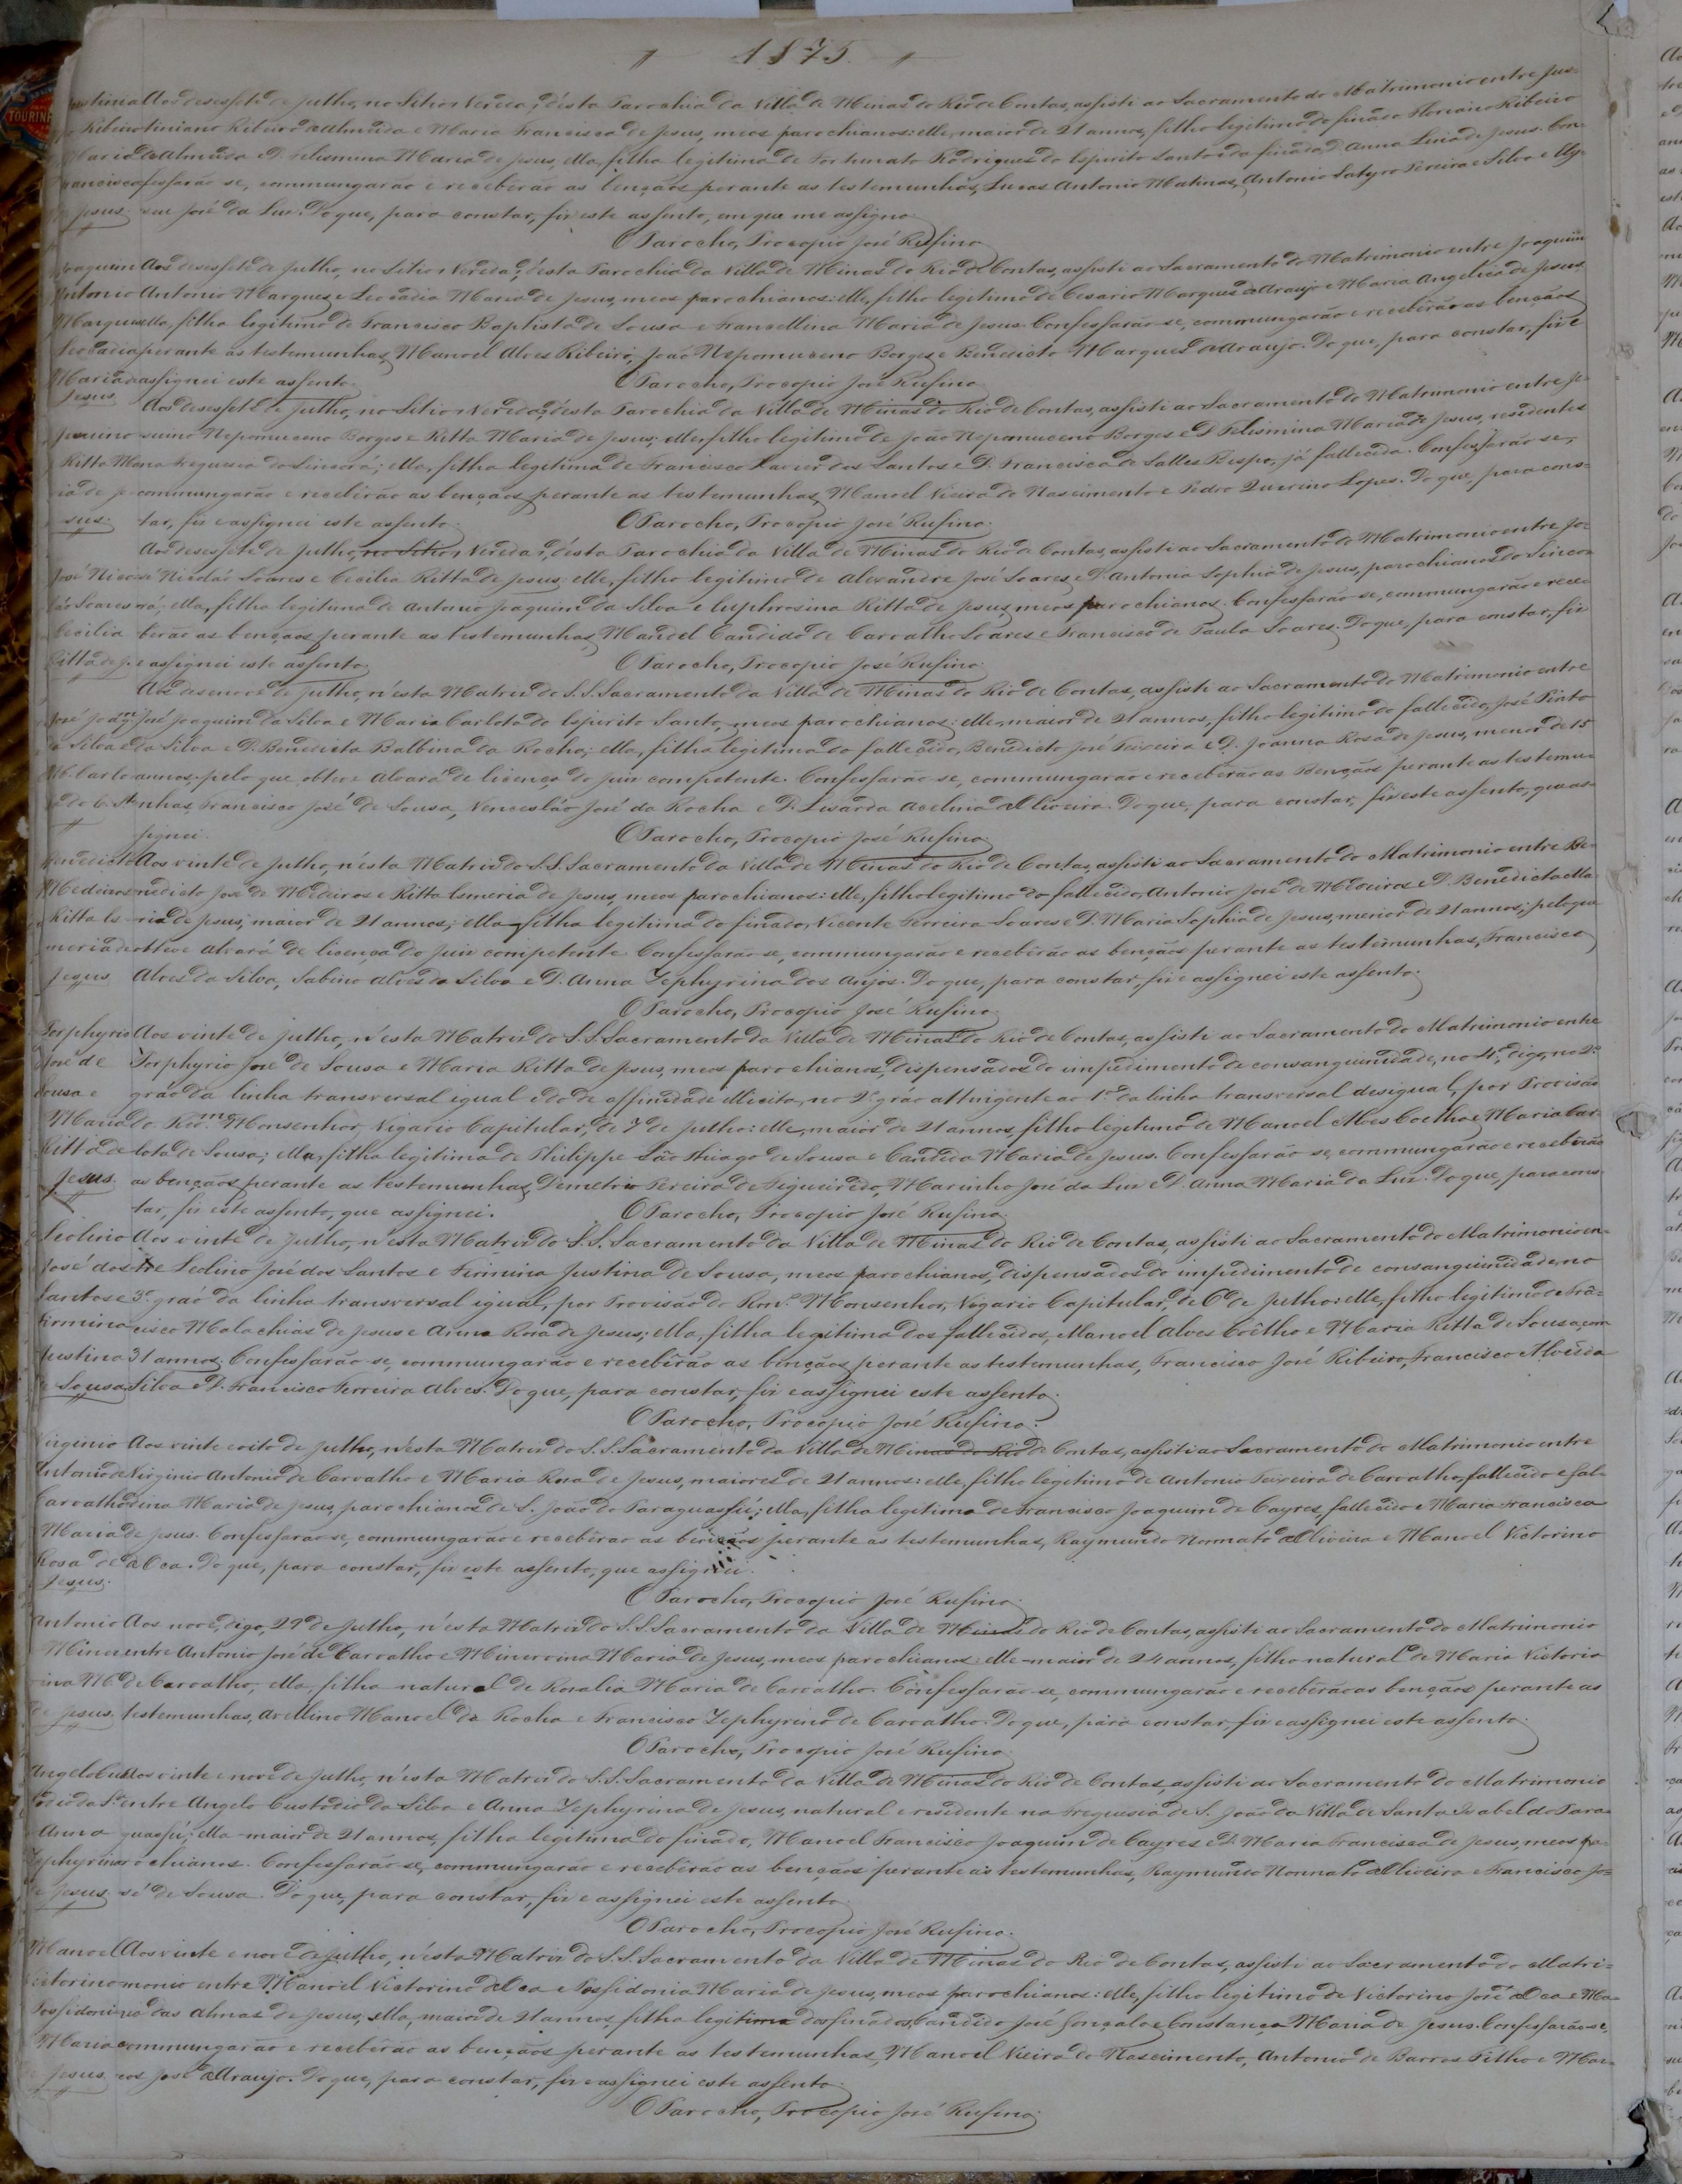 1875.
Aos desessete de Julho, no Sitio Vereda, d'esta Parochia da Villa de Minas do Rio de Contas, assisti ao Sacramento do Matrimonio entre Jus-
Ribeiro tiniano Ribeiro d'Almeida e Maria Francisca de Jesus, meos parochianos: elle, maior de 21 annos, filho legitimo do finado Floriano Ribeiro
Maria d'Almeida e D. Felismina Maria de Jesus, ella, filha legitima de Fortunato Rodrigues do Espirito Santo e da finada D. Anna Liria de Jesus. Con-
Francisca fessarão se, commungarão e receberão as bençãos perante as testemunhas, Lucas Antonio Matinas, Antonio Satyro Pereira e Silva e
Jesus. José da Luz. Do que, para constar, fiz este assento, em que me assigno.
O Parocho, Procopio José Rufino.
Joaquim Aos desessete de Julho, no Sitio Vereda, d'esta Parochia da Villa de Minas do Rio de Contas, assisti ao Sacramento do Matrimonio entre Joaquim
Antonio Antonio Marques e Leocadia Maria de Jesus, meos parochianos: elle, filho legitimo de Cesario Marques d'Araujo e Maria Angelica de Jesus;
Marques ella, filha legitima de Francisco Baptista de Sousa e Francellina Maria de Jesus. Confessarão-se, commungarão e receberão as bençãos
Leocadia perante as testemunhas, Manoel Alves Ribeiro, João Nepomuceno Borges e Benedicto Marques d'Araujo. Do que, para constar, fiz e
Maria de assignei este assento. O Parocho, Procopio José Rufino.
Jesus. Aos desessete de Julho, no Sitio Vereda, d'esta Parochia da Villa de Minas do Rio de Contas, assisti ao Sacramento do Matrimonio entre Je-
Jesuino suino Nepomuceno Borges e Ritta Maria de Jesus: elle, filho legitimo de João Nepomuceno Borges e D. Felismina Maria de Jesus, residentes
Ritta Ma na Freguesia do Sincorá; ella, filha legitima de Francisco Xavier dos Santos e D. Francisca de Salles Bispo, já fallecida. Confessarão se,
ria de Je commungarão e receberão as bençãos perante as testemunhas, Manoel Vieira do Nascimento e Pedro Quirino Lopes. Do que, para cons-
sus. tar, fiz e assignei este assento. O Parocho, Procopio José Rufino.
Aos desessete de Julho, no Sitio, Vereda, d'esta Parochia da Villa de Minas do Rio de Contas, assisti ao Sacramento do Matrimonio entre Jo-
José Nico sé Nicoláo Soares e Cecilia Ritta de Jesus: elle, filho legitimo de Alexandre José Soares e D. Antonia Sophia de Jesus, parochianos do Sinco-
láo Soares rá; ella, filha legitima de Antonio Joaquim da Silva e Euphrosina Ritta de Jesus, meos parochianos. Confessarão-se, commungarão e rece-
Cecilia berão as bençãos perante as testemunhas, Manoel Candido de Carvalho Soares e Francisco de Paula Soares. Do que, para constar, fiz
Ritta de J. e assignei este assento. O Parocho, Procopio José Rufino.
Aos desenove de Julho, n'esta Matriz do S.S. Sacramento da Villa de Minas do Rio de Contas, assisti ao Sacramento do Matrimonio entre
José Joaqm José Joaquim da Silva e Maria Carlota do Espirito Santo, meos parochianos: elle, maior de 21 annos, filho legitimo do fallecido, José Pinto
da Silva e da Silva e D. Benedicta Balbina da Rocha; ella, filha legitima do fallecido, Benedicto José Teixeira e D. Joanna Rosa de Jesus, menor de 15
M. Carlo annos, pelo que obteve Alvará de licença do Juiz competente. Confessarão-se, commungarão e receberão as Bençãos perante as testemu-
ta do E. Sto nhas, Francisco José de Sousa, Venceslão José da Rocha e D. Lisarda Acelina d'Oliveira. Do que, para constar, fiz este assento, que as-
signei. O Parocho, Procopio José Rufino.
Benedicto Aos vinte de Julho, n'esta Matriz do S.S. Sacramento da Villa de Minas do Rio de Contas, assisti ao Sacramento do Matrimonio entre Be-
Medeiros nedicto José de Medeiros e Ritta Esmeria de Jesus, meos parochianos: elle, filho legitimo do fallecido, Antonio José de Medeiros e D. Benedicta Ma-
Ritta Es- ria de Jesus, maior de 21 annos; ella filha legitima do finado, Vicente Ferreira Soares e D. Maria Sophia de Jesus, menor de 21 annos; pelo que
meria de obteve Alvará de licença do Juiz competente. Confessarão-se, commungarão e receberão as bençãos perante as testemunhas, Francisco
Jesus Alves da Silva, Sabino Alves da Silva e D. Anna Zephyrina dos Anjos. Do que, para constar, fiz e assignei este assento.
O Parocho, Procopio José Rufino.
Porphyrio Aos vinte de Julho, n'esta Matriz do S.S. Sacramento da Villa de Minas do Rio de Contas, assisti ao Sacramento do Matrimonio entre
José de Porphyrio José de Sousa e Maria Ritta de Jesus, meos parochianos, dispensados do impedimento de consanguinidade, no 4º, digo, no 2º
Sousa e gráo da linha transversal igual e do de affinidade illicita, no 2º gráo attingente ao 1º da linha transversal desigual, por Provisão
Maria do Revmo Monsenhor, Vigario Capitular, de 7 de Julho: elle, maior de 21 annos, filho legitimo de Manoel Alves Coelho e Maria Car-
Ritta de lota de Sousa; ella, filha legitima de Philippe São Thiago de Sousa e Candida Maria de Jesus. Confessarão se, commungarão e receberão
Jesus. as bençãos perante as testemunhas, Demetrio Pereira de Figueiredo, Marinho José da Luz e D. Anna Maria da Luz. Do que, para cons-
tar, fiz este assento, que assignei. O Parocho, Procopio José Rufino.
Leolino Aos vinte de Julho, n'esta Matriz do S.S. Sacramento da Villa de Minas do Rio de Contas, assisti ao Sacramento do Matrimonio en-
José dos tre Leolino José dos Santos e Firmina Justina de Sousa, meos parochianos, dispensados do impedimento de consanguinidade, no
Santos e 3º gráo da linha transversal igual, por Provisão do Rmo Monsenhor, Vigario Capitular, de 6 de Julho: elle, filho legitimo de Frã-
Firmina cisco Malachias de Jesus e Anna Rosa de Jesus; ella, filha legitima dos fallecidos, Manoel Alves Coêlho e Maria Ritta de Sousa, com
Justina 31 annos. Confessarão-se, commungarão e receberão as bençãos perante as testemunhas, Francisco José Ribeiro, Francisco Alves da
de Sousa Silva e D. Francisca Ferreira Alves. Do que, para constar, fiz e assignei este assento.
O Parocho, Procopio José Rufino.
Virginio Aos vinte e oito de Julho, n'esta Matriz do S.S. Sacramento da Villa de Minas do Rio de Contas, assisti ao Sacramento do Matrimonio entre
Antonio de Virginio Antonio de Carvalho e Maria Rosa de Jesus, maiores de 21 annos: elle, filho legitimo de Antonio Teixeira de Carvalho, fallecido e Sal-
Carvalho dina Maria de Jesus, parochianos de S. João do Paraguassú; ella, filha legitima de Francisco Joaquim de Cayres, fallecido e Maria Francisca
Maria de Jesus. Confessarão-se, commungarão e receberão as bençãos perante as testemunhas, Raymundo Nonnato d'Oliveira e Manoel Victorino
Rosa de d'Oca. Do que, para constar, fiz este assento, que assignei.
Jesus.
O Parocho, Procopio José Rufino.
Antonio Aos nove, digo, 29 de Julho, n'esta Matriz do S.S. Sacramento da Villa de Minas do Rio de Contas, assisti ao Sacramento do Matrimonio
Miner entre Antonio José de Carvalho e Minervina Maria de Jesus, meos parochianos: elle maior de 24 annos, filho natural de Maria Victoria
vina M. de Carvalho; ella, filha natural de Rosalia Maria de Carvalho. Confessarão-se, commungarão e receberão as bençãos perante as
de Jesus. testemunhas, Avellino Manoel da Rocha e Francisco Zephyrino de Carvalho. Do que, para constar, fiz e assignei este assento.
O Parocho, Procopio José Rufino.
Angelo Cus Aos vinte e nove de Julho, n'esta Matriz do S.S. Sacramento da Villa de Minas do Rio de Contas, assisti ao Sacramento do Matrimonio
todio da Sª entre Angelo Custodio da Silva e Anna Zephyrina de Jesus, natural e residente na Freguesia de S. João da Villa de Santa Isabel do Para-
Anna guassú; ella maior de 21 annos, filha legitima do finado, Manoel Francisco Joaquim de Cayres e D. Maria Francisca de Jesus, meos pa-
Zephyrina rochianos. Confessarão-se, commungarão e receberão as bençãos perante as testemunhas, Raymundo Nonnato d'Oliveira e Francisco Jo-
de Jesus sé de Sousa. Do que, para constar, fiz e assignei este assento.
O Parocho, Procopio José Rufino.
Manoel Aos vinte e nove de Julho, n'esta Matriz do S.S. Sacramento da Villa de Minas do Rio de Contas, assisti ao Sacramento do Matri-
Victorino monio entre Manoel Victorino d'Oca e Possidonia Maria de Jesus, meos parochianos: elle, filho legitimo de Victorino José d'Oca e Ma-
Possidoni ria das Almas de Jesus, ella, maior de 21 annos, filha legitima dos finados, Candido José Gonçalo e Constança Maria de Jesus. Confessarão-se,
Maria commungarão e receberão as bençãos perante as testemunhas, Manoel Vieira do Nascimento, Antonio de Barros Filho e Mar-
de Jesus cos José d'Araujo. Do que, para constar, fiz e assignei este assento.
O Parocho, Procopio José Rufino.